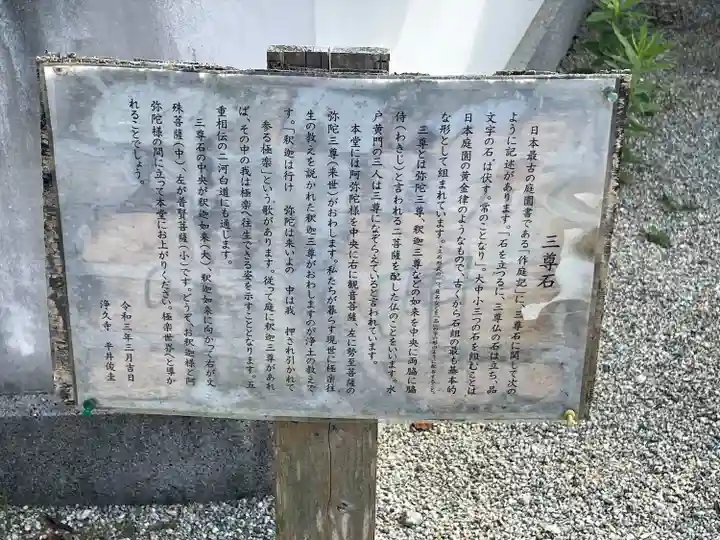 三尊石
日本最古の庭園書である「作庭記」に、三尊石に関して次の
ように記述があります。「石を立つるに、三尊仏の石は立ち、品
文字の石は伏す。常のことなり」。大中小三つの石を組むことは
日本庭園の黄金律のようなもので、古くから石組の最も基本的
な形として組まれています。
三尊とは弥陀三尊、釈迦三尊などの如来を中央に両脇に脇
侍(わきじ)と言われる二菩薩を配した仏のことをいいます。水
戸黄門の三人は三尊になぞらえていると言われています。
本堂には阿弥陀様を中央に右に観音菩薩、左に勢至菩薩の
弥陀三尊(来世)がおわします。私たちが暮らす現世に極楽往
生の教えを説かれた釈迦三尊がおわしますのが浄土の教えで
す。「釈迦は行け 弥陀は来いよの 中は我 押され引かれて
参る極楽」という歌があります。従って庭に釈迦三尊があれ
ば、その中の我は極楽へ往生できる姿を示すこととなります。五
重相伝の二河白道にも通じます。
三尊石の中央が釈迦如来(大)、釈迦如来に向かって右が文
殊菩薩(中)、左が普賢菩薩(小)です。どうぞ、お釈迦様と阿
弥陀様の間に立って本堂にお上がりください。極楽世界へと導か
れることでしょう。
令和三年三月吉日
浄久寺 平井俊圭